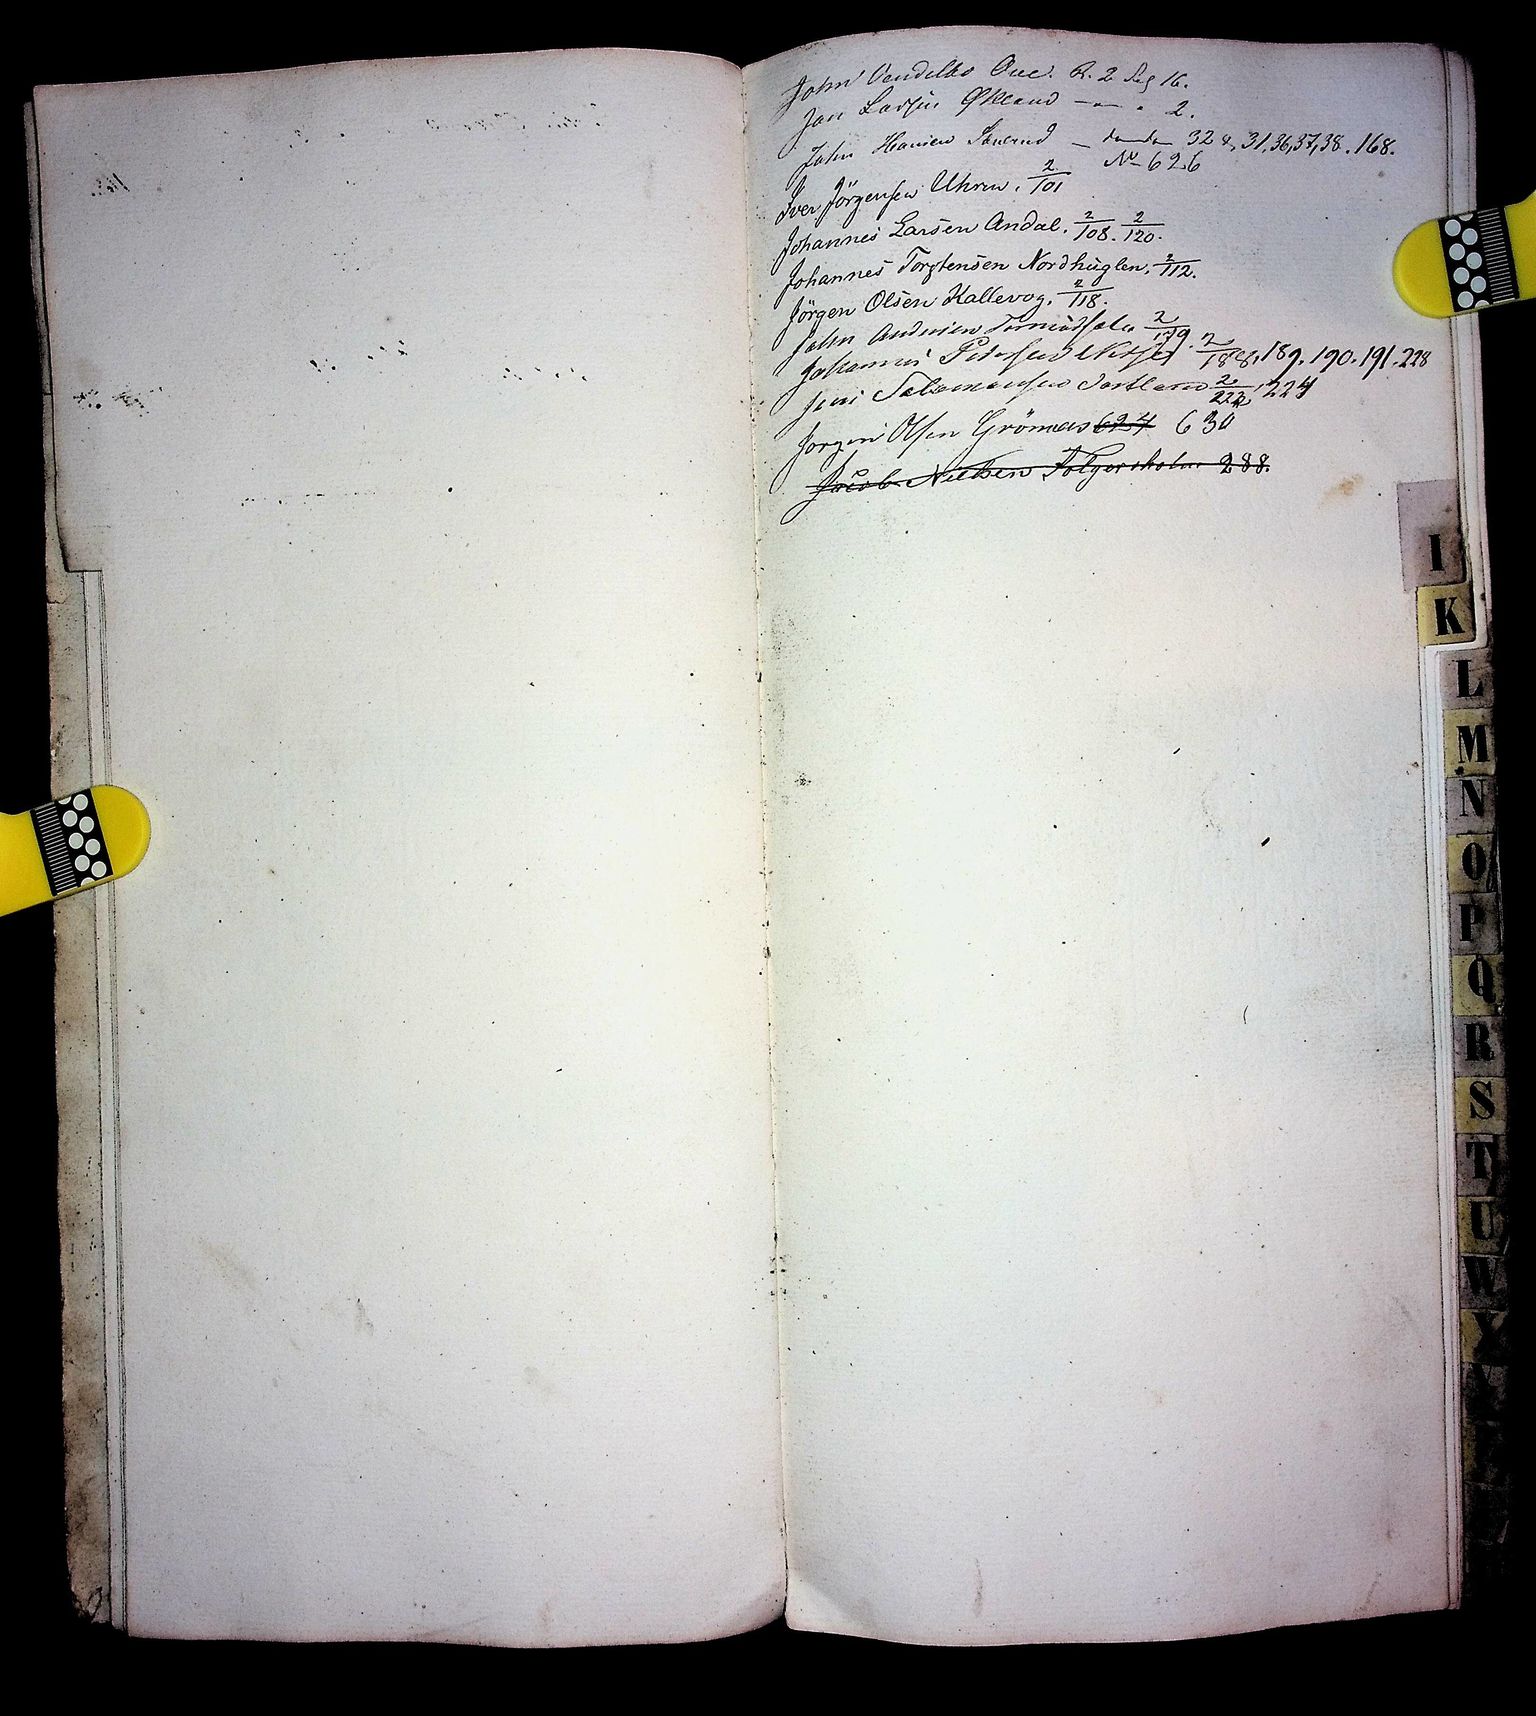 John Vendelbo Oue. R. 2 Pag 16.
Jan Larsen Økland — " — " 2.
John Hansen — do — do 32 &, 31, 36, 37, 38. 168.
No 626
Iver Jörgensen Uhren. 2/101
Johannes Larsen Andal. 2/108. 2/120.
Johannes Torstensen Nordhuglen. 2/112.
Jörgen Olsen Kallevog. 2/118.
John Andersen 2/179.
Johannes Petersen 2/188, 189. 190. 191. 228
Jens Salamonsen 2/222, 224
Jorgen Olsen Grönnæs 627 630
Jacob Nielsen Folgerøholm 288.
I
K
L
M
N
O
P
Q
R
S
T
U
W
X